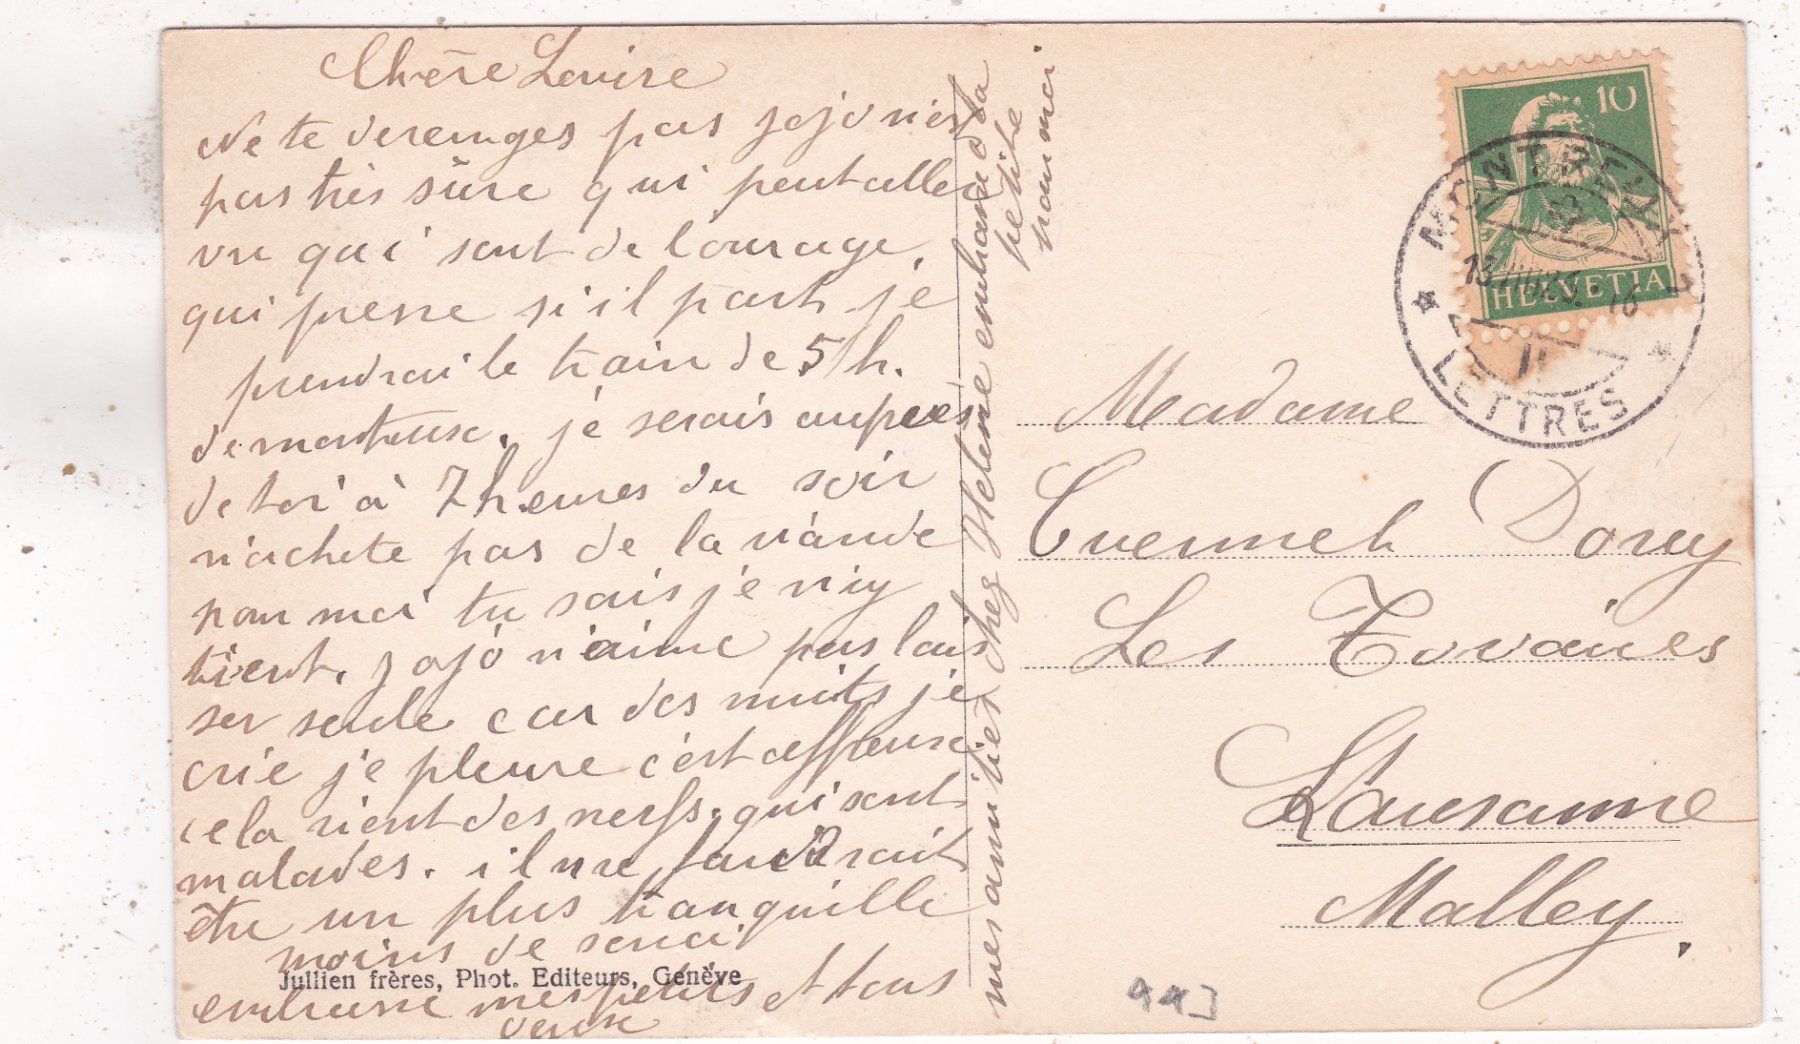 Chère Louise
Ne te derenges pas jojo n'est
pas très sûre qui peut aller
vu qu'i sont de lourage.
qui presse si il part je
prendrai le train de 5 h.
de montreux. je serais aupres
de toi à 7 heures du soir
n'achete pas de la viande
pour moi tu sais je n'iy
tient. jojo n'aime pas lais
ser seule car des nuits je
crie je pleure c'est affreuse
cela vient des nerfs. qui sont
malades. il me faudrait
être un plus tranquille
moins de souci.
embrasse mes petits et tous
deux
mes amitiés chez Helene embrasse la
petite
pour moi
Jullien frères, Phot. Editeurs, Genève
10
HELVETIA
MONTREUX 1
LETTRES
Madame
Dorey
Les
Lausanne
Malley.